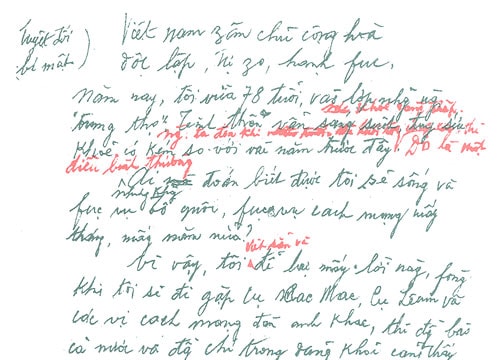 Tuyệt đối
bí mật )
Việt nam zân chủ cộng hoà
độc lập, tự zo, hạnh fúc,
Năm nay, tôi vừa 78 tuổi, vào lớp những
"trung thọ". Tinh thần vẫn sáng suốt, tuy sức
khoẻ có kém so với vài năm trước đây. Đó là một
điều bình thường
Nhưng ai đoán biết được tôi sẽ sống và
fục vụ tổ quốc, fục vụ cách mạng mấy
tháng, mấy năm nữa?
viết sẵn và
Vì vậy, tôi để lại mấy lời này, fòng
khi tôi sẽ đi gặp cụ Các Mác, cụ Lênin và
các vị cách mạng đàn anh khác, thì đ bào
cả nước và đ chí trong đảng khỏi cảm thấy